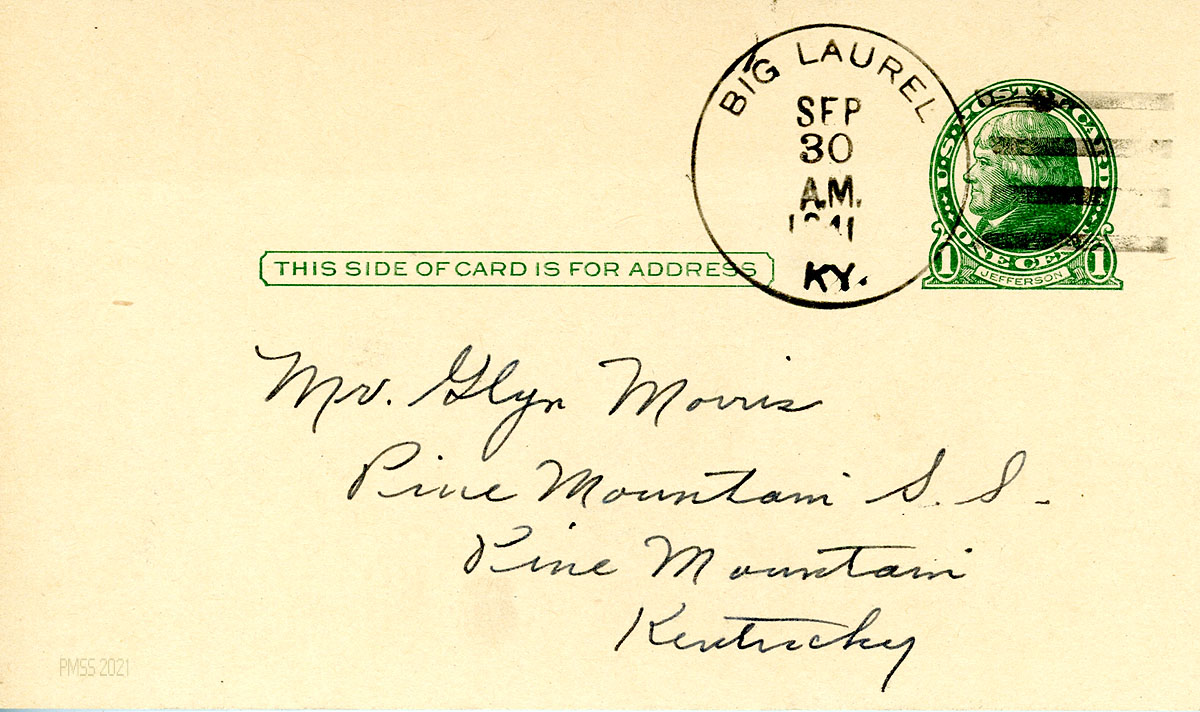 BIG LAUREL
SEP
30
A.M.
1941
KY.
U.S. POSTAL CARD
ONE CENT
1 JEFFERSON 1
THIS SIDE OF CARD IS FOR ADDRESS
Mr. Glyn Morris
Pine Mountain S. S.
Pine Mountain
Kentucky
PMSS 2021